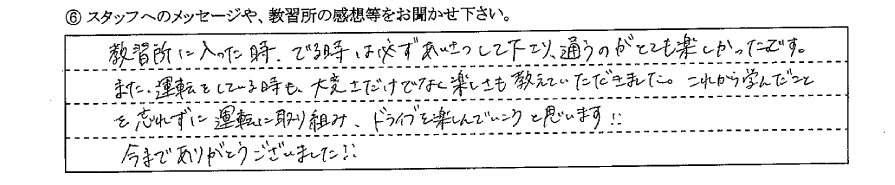 ⑥ スタッフへのメッセージや、教習所の感想等をお聞かせ下さい。
教習所に入った時、でる時は必ずあいさつして下さり、通うのがとても楽しかったです。
また、運転をしている時も、大変さだけでなく楽しさも教えていただきました。これから学んだこと
を忘れずに運転に取り組み、ドライブを楽しんでいこうと思います!!
今までありがとうございました!!